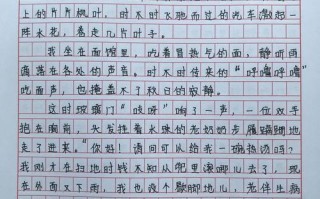 上的片片枫叶，时不时飞驰而过的汽车溅起一
阵水花，卷走几片叶子。
我坐在面馆里，吃着冒热气的面，静听雨
滴落在各处的声音。时不时传来的“呼噜呼噜”
吃面声，也掩盖不了秋日的寂静。
这时玻璃门“吱呀”响了一声，一位双手
抱在胸前，头发挂着水珠的老奶奶步履蹒跚地
走了进来。“你好！请问可以给我一碗热汤吗？
我刚才在扫地时钱不知从哪里滚哪儿去了，现
在外面又下雨，我也没个歇脚地儿，老伴生病